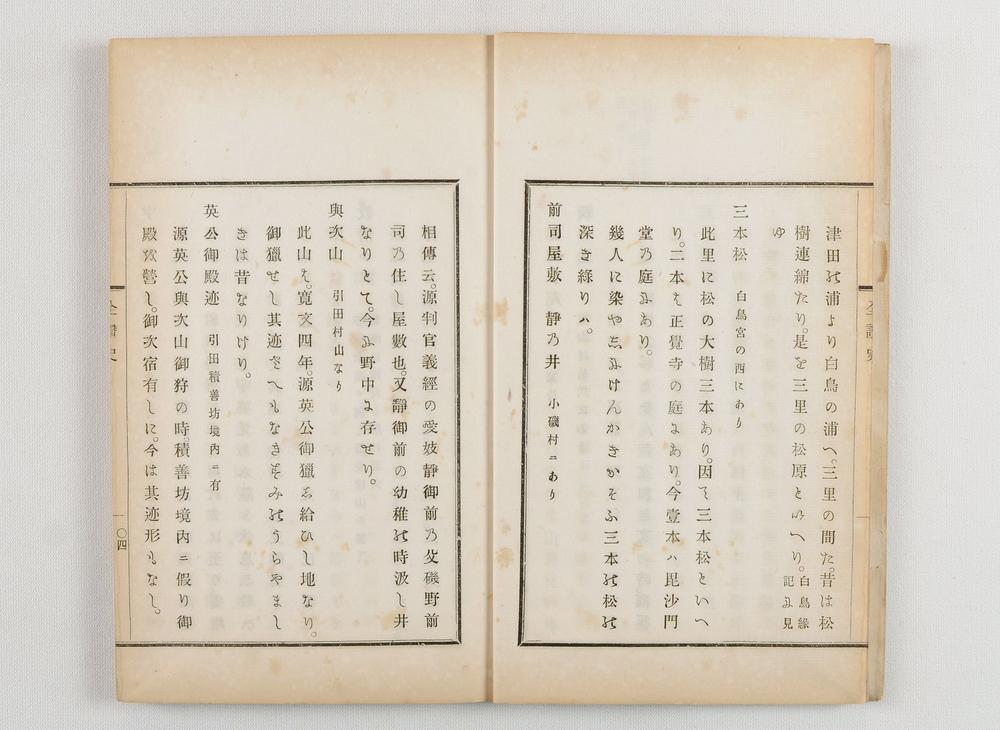 津田の浦より白鳥の浦へ。三里の間た。昔は松
樹連綿たり。是を三里の松原とゆへり。白鳥縁記に見
ゆ
三本松 白鳥宮の西にあり
此里に松の大樹三本あり。因て三本松といへ
り。二本は正覺寺の庭にあり。今壹本ハ毘沙門
堂乃庭にあり。
幾人に染やしにけんかきかそふ三本の松の
深き緑りハ。
前司屋敷 靜乃井 小磯村ニあり
相傳云。源判官義經の愛妓靜御前乃父磯野前
司乃住し屋敷也。又靜御前の幼稚の時汲し井
なりとて。今に野中に存せり。
與次山 引田村山なり
此山は。寛文四年。源英公御獵し給ひし地なり。
御獵せし其迹さへもなききみのうらやまし
きは昔なりけり。
英公御殿迹 引田積善坊境内ニ有
源英公與次山御狩の時。積善坊境内ニ假り御
殿を營し。御次宿有しに。今は其迹形もなし。
全讃史
〇四
全讃史